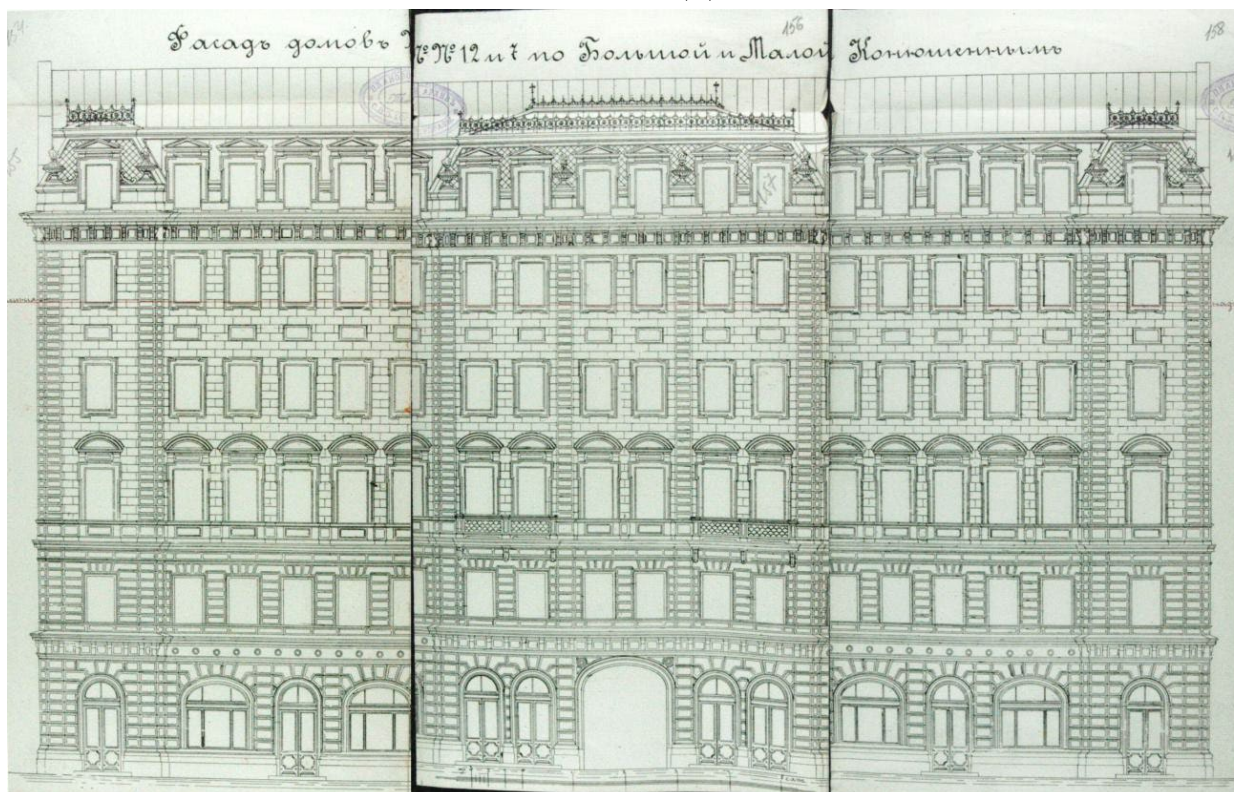 156
158
Фасадъ домовъ №№ 12 и 7 по Большой и Малой Конюшеннымъ
157